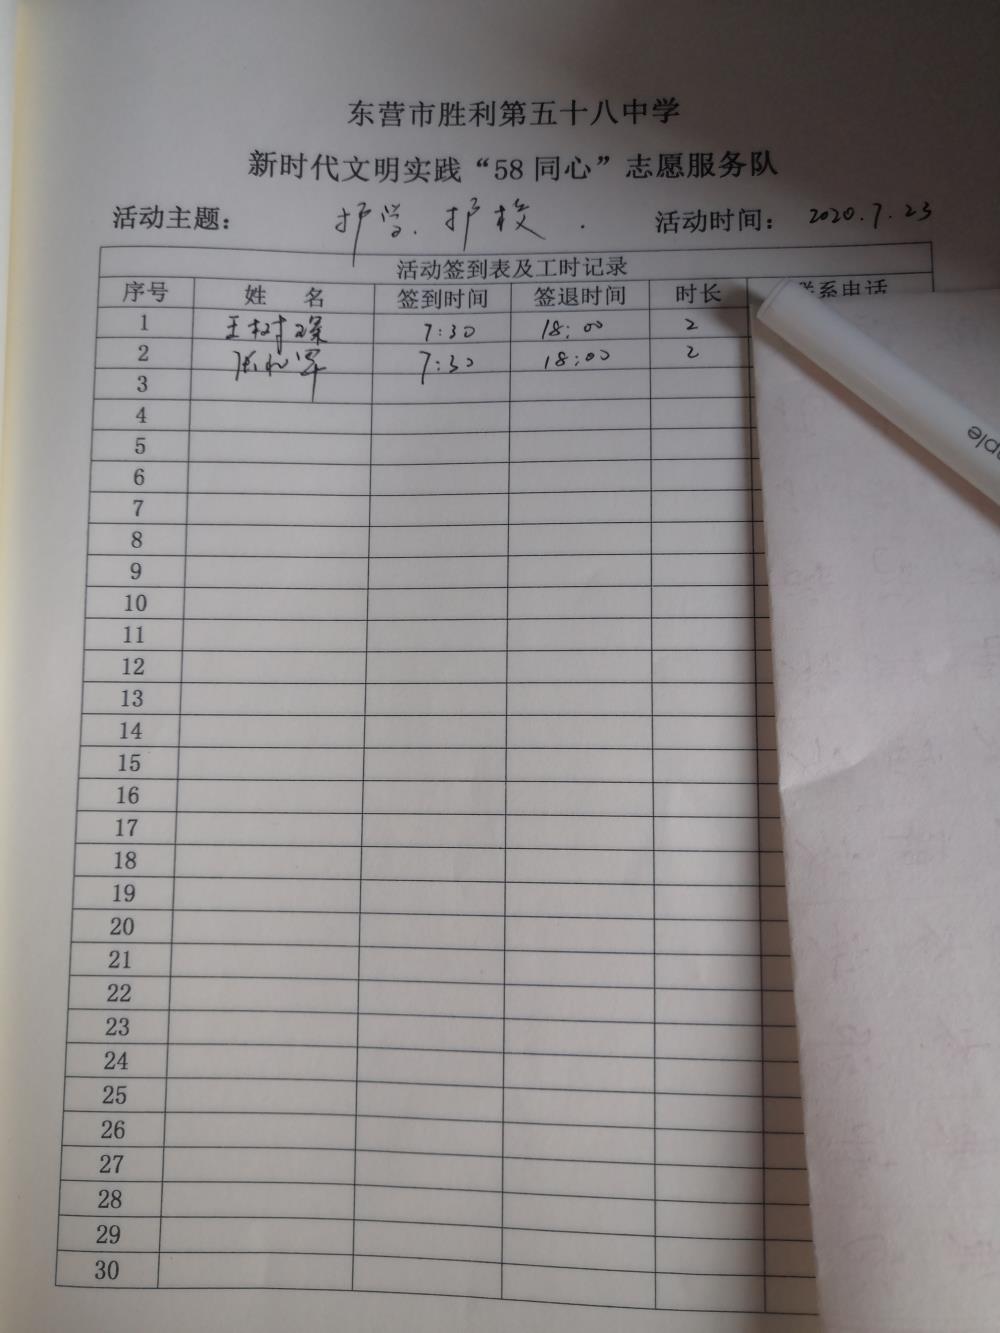 东营市胜利第五十八中学
新时代文明实践“58同心”志愿服务队
活动主题： 护学、护校. 活动时间： 2020.7.23
活动签到表及工时记录
序号 姓 名 签到时间 签退时间 时长 联系电话
1 王树琛 7:30 18:00 2
2 7:30 18:00 2
3
4
5
6
7
8
9
10
11
12
13
14
15
16
17
18
19
20
21
22
23
24
25
26
27
28
29
30